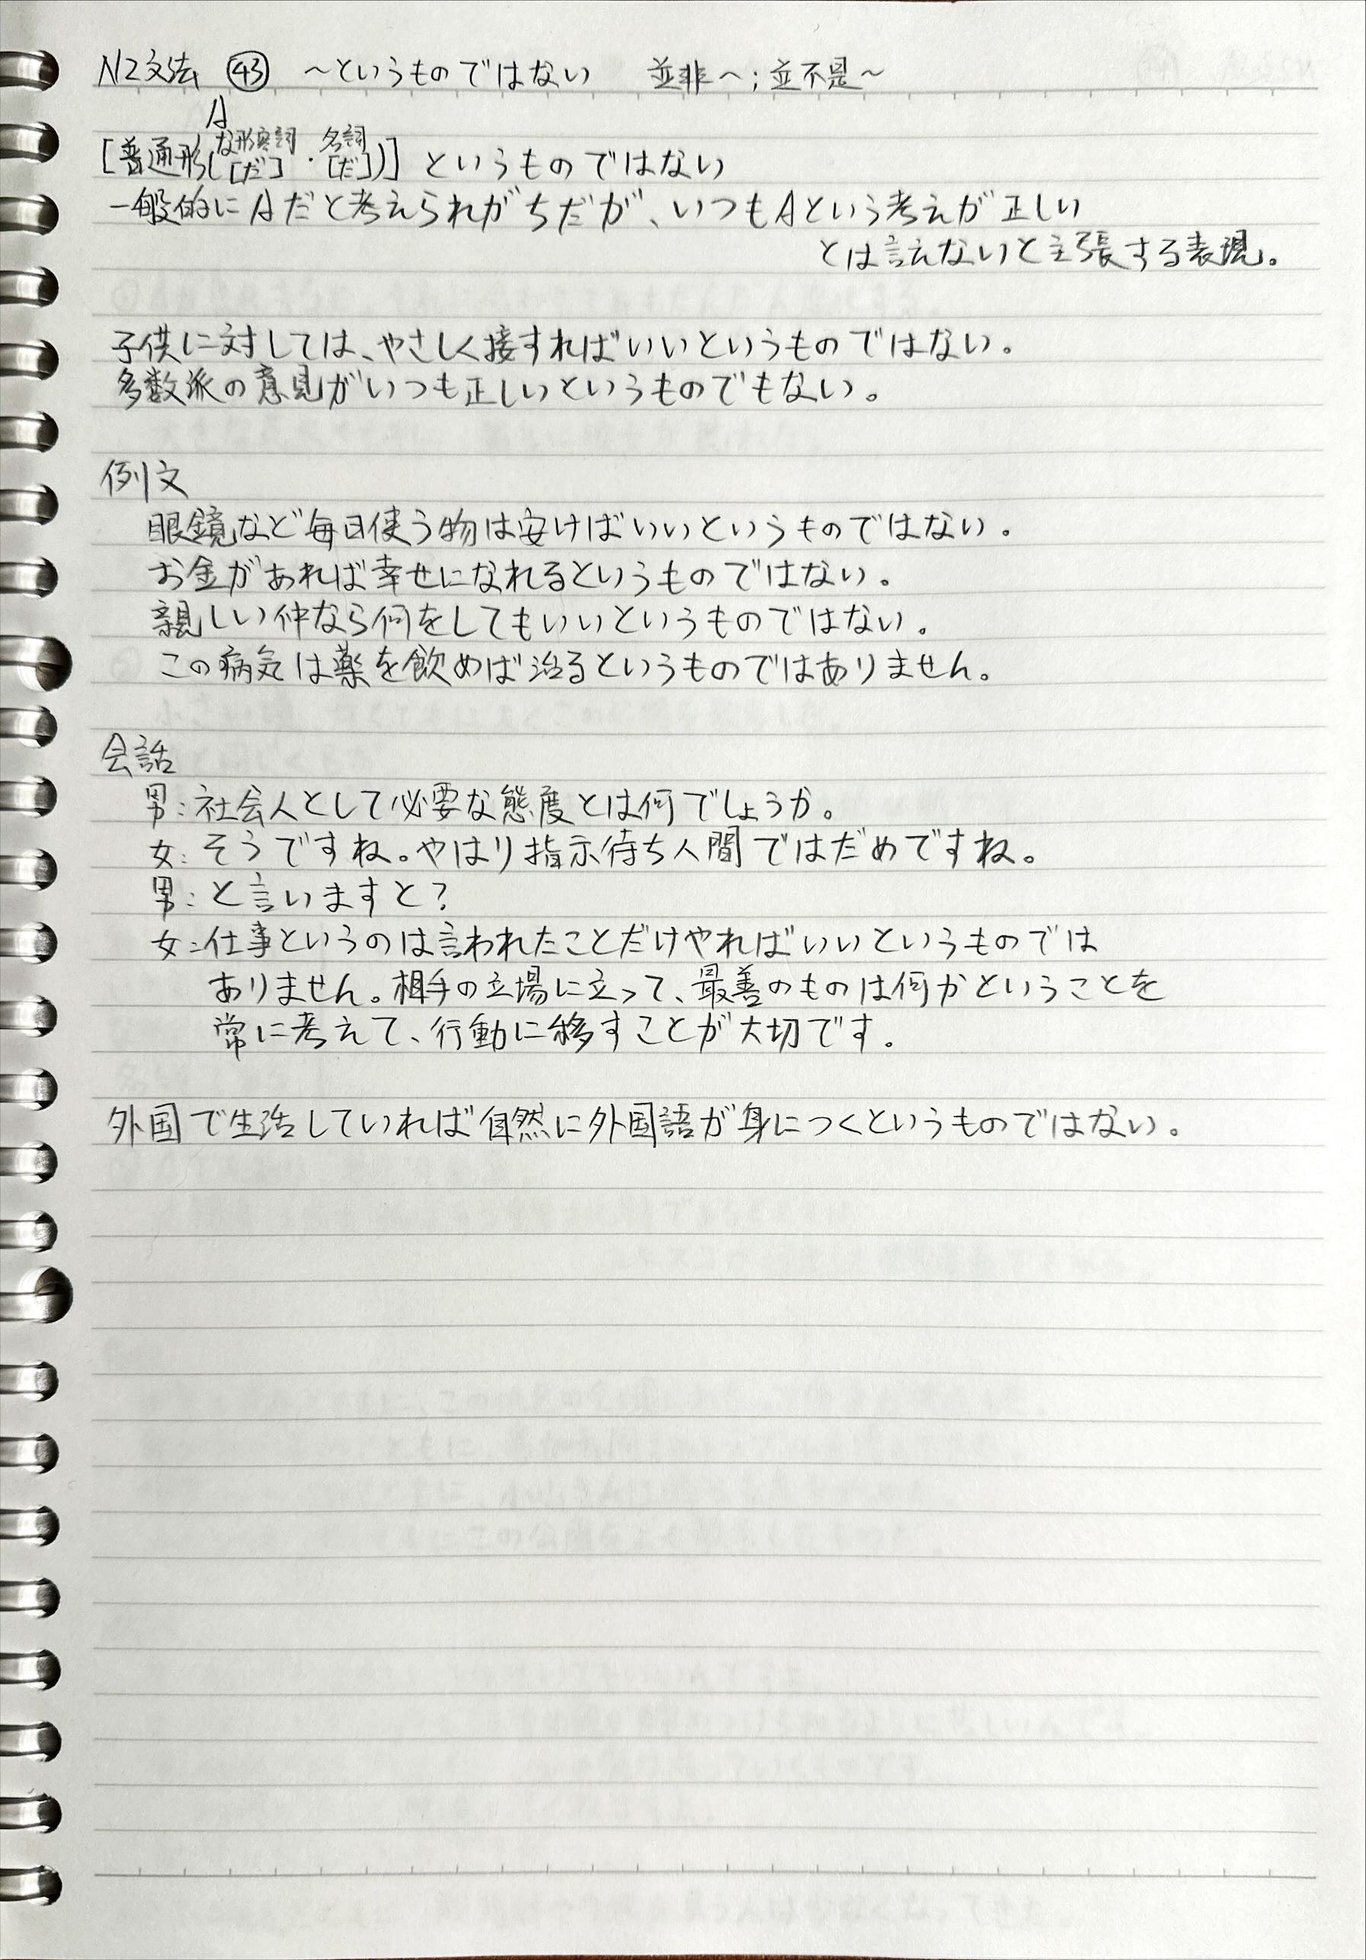 N2文法 ㊸ ～というものではない 並非～；並不是～
A
な形容詞 名詞
[普通形([だ]・[だ])] というものではない
一般的にAだと考えられがちだが、いつもAという考えが正しい
とは言えないと主張する表現。
子供に対しては、やさしく接すればいいというものではない。
多数派の意見がいつも正しいというものでもない。
例文
眼鏡など毎日使う物は安けばいいというものではない。
お金があれば幸せになれるというものではない。
親しい仲なら何をしてもいいというものではない。
この病気は薬を飲めば治るというものではありません。
会話
男：社会人として必要な態度とは何でしょうか。
女：そうですね。やはり指示待ち人間ではだめですね。
男：と言いますと？
女：仕事というのは言われたことだけやればいいというものでは
ありません。相手の立場に立って、最善のものは何かということを
常に考えて、行動に移すことが大切です。
外国で生活していれば自然に外国語が身につくというものではない。